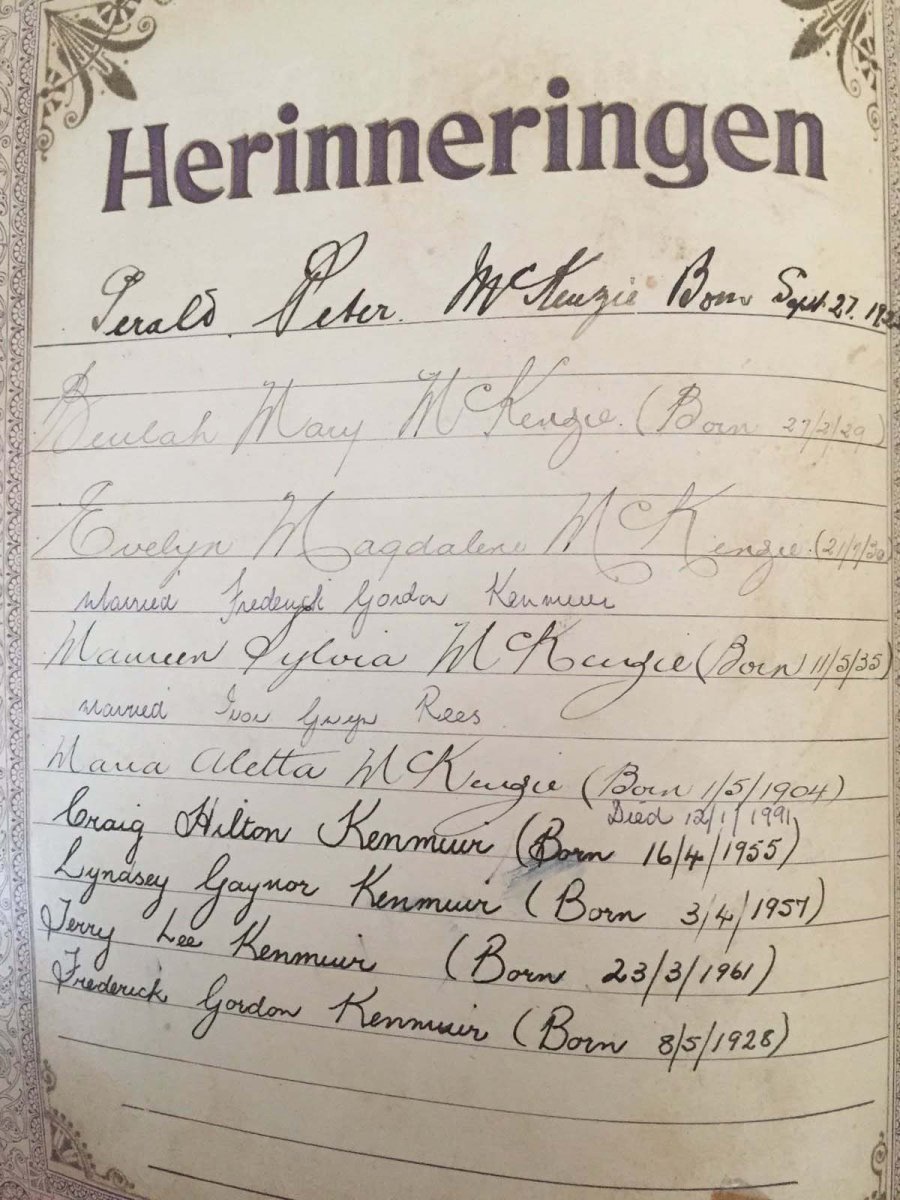 Herinneringen
Gerald. Peter. McKenzie Born Sept. 27.
Beulah Mary McKenzie. (Born 27/2/29)
Evelyn Magdalene McKenzie. (21/7/30)
Married Frederick Gordon Kenmuir
Maureen Sylvia McKenzie (Born 11/5/35)
Married Ivor Gwyn Rees
Maria Aletta McKenzie (Born 1/5/1904)
Died 12/1/1991
Craig Hilton Kenmuir (Born 16/4/1955)
Lyndsey Gaynor Kenmuir (Born 3/4/1957)
Terry Lee Kenmuir (Born 23/3/1961)
Frederick Gordon Kenmuir (Born 8/5/1928)